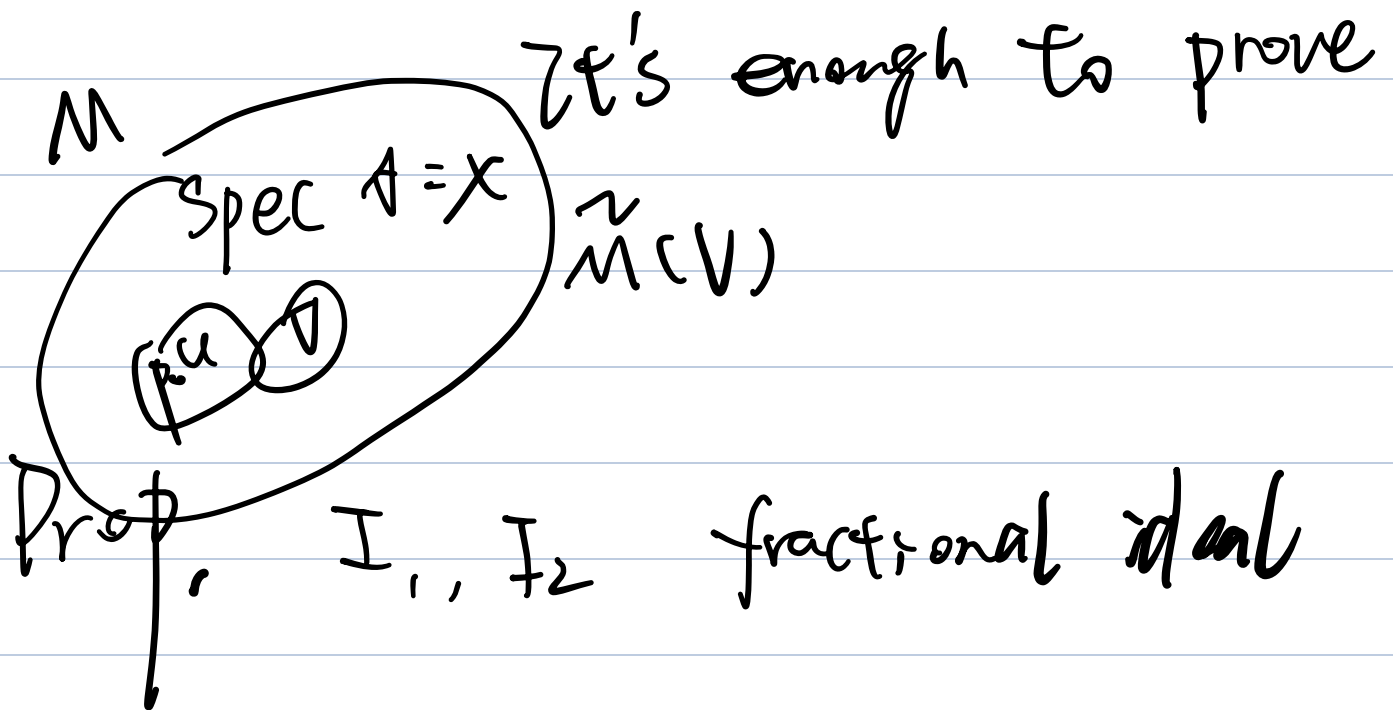 It's enough to prove
M
Spec A = X
M̃(V)
p. U V
Prop. I₁, I₂ fractional ideal